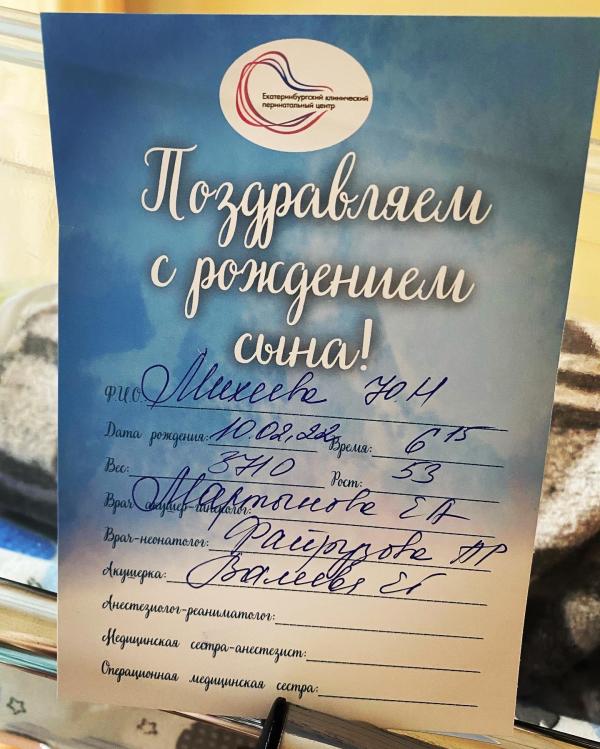 Екатеринбургский клинический
перинатальный центр
Поздравляем
с рождением
сына!
Ф.И.О. Михеева Ю Н
Дата рождения: 10.02.22 Время: 6 15
Вес: 3710 Рост: 53
Врач акушер-гинеколог: Мартынова Е А
Врач-неонатолог: Файрузова АР
Акушерка: Валеева ЕГ
Анестезиолог-реаниматолог:
Медицинская сестра-анестезист:
Операционная медицинская сестра: